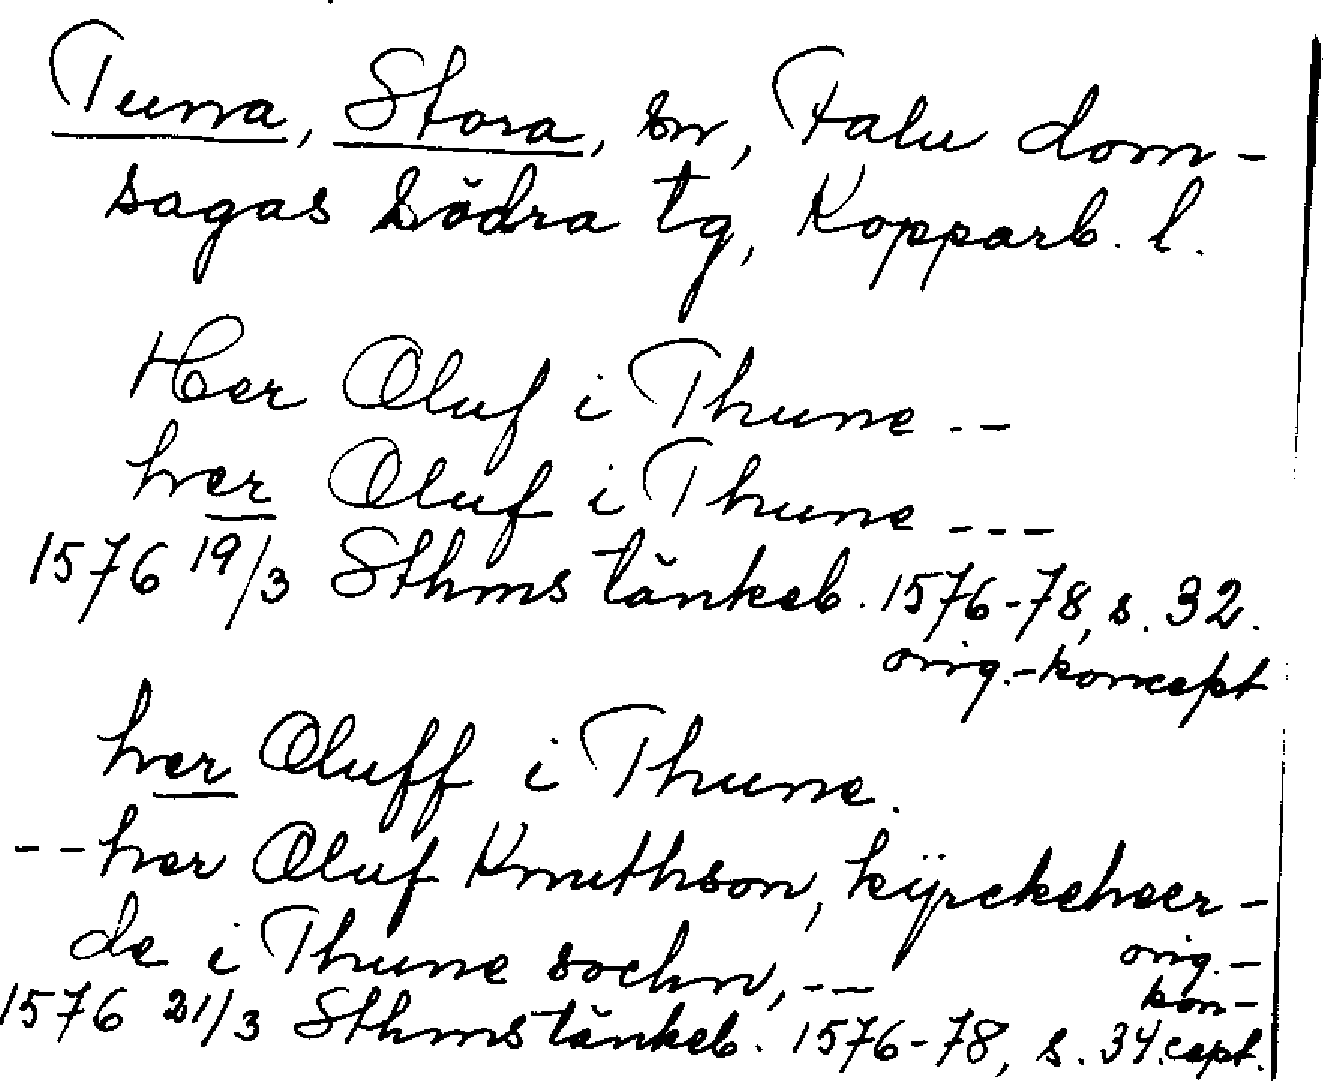 Tuna, Stora, sn, Falu dom-
sagas södra tg, Kopparb. l.
Her Oluf i Thune ---
her Oluf i Thune ---
1576 19/3 Sthms tänkeb. 1576-78, s. 32.
orig.-koncept
her Oluff i Thune.
-- her Oluf Knuthson, kÿrckeheer-
de i Thune sochn, ---
orig.-
kon-
1576 21/3 Sthms tänkeb. 1576-78, s. 34. cept.